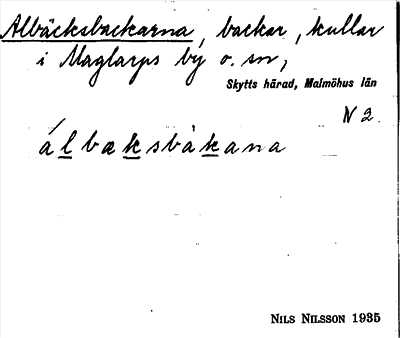 Albäcksbackarna, backar, kullar
i Maglarps by o. sn,
Skytts härad, Malmöhus län
N 2.
álbæksbàkana
NILS NILSSON 1935